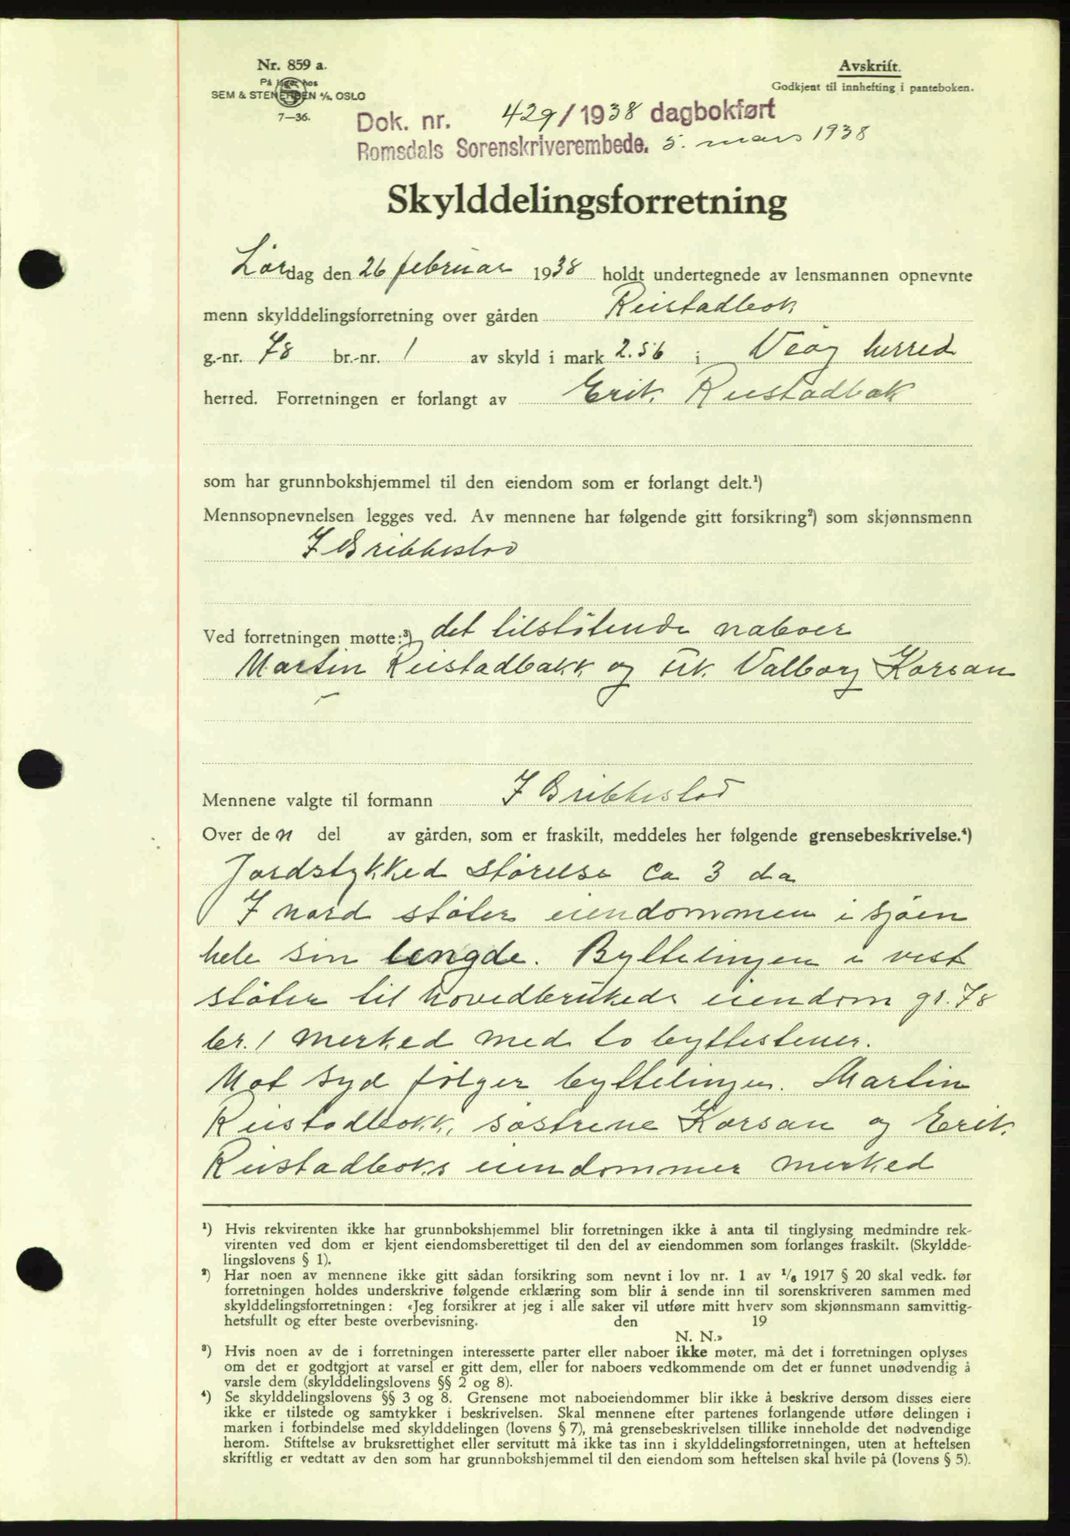 Nr. 859 a.
På lager hos
SEM & STENERSEN A/S, OSLO
7—36.
Avskrift.
Godkjent til innhefting i panteboken.
Dok. nr. 429/1938 dagbokført
Romsdals Sorenskriverembede. 5. mars 1938
Skylddelingsforretning
Lørdag den 26 februar 1938 holdt undertegnede av lensmannen opnevnte
menn skylddelingsforretning over gården Reistadbok
g.-nr. 78 br.-nr. 1 av skyld i mark 2.56 i Veøy herred
herred. Forretningen er forlangt av Erik Reistadbak
som har grunnbokshjemmel til den eiendom som er forlangt delt.¹)
Mennsopnevnelsen legges ved. Av mennene har følgende gitt forsikring²) som skjønnsmenn
I Gribbestad
Ved forretningen møtte:³) det tilstøtende naboer
Martin Reistadbakk og frk. Valborg Korsan
Mennene valgte til formann I Gribbestad
Over de n del av gården, som er fraskilt, meddeles her følgende grensebeskrivelse.⁴)
Jordstykked størelse ca 3 da
I nord støter eiendommen i sjøen
hele sin lengde. Byttelingen i vest
støter til hovedbrukeds eiendom gr. 78
br. 1 merked med to byttestener.
Mot syd følger byttelingen. Martin
Reistadbokk, søstrene Korsan og Erik
Reistadboks eiendommer merked
¹) Hvis rekvirenten ikke har grunnbokshjemmel blir forretningen ikke å anta til tinglysing medmindre rek-
virenten ved dom er kjent eiendomsberettiget til den del av eiendommen som forlanges fraskilt. (Skyldde-
lingslovens § 1).
²) Har noen av mennene ikke gitt sådan forsikring som nevnt i lov nr. 1 av ¹/₆ 1917 § 20 skal vedk. før
forretningen holdes underskrive følgende erklæring som blir å sende inn til sorenskriveren sammen med
skylddelingsforretningen: «Jeg forsikrer at jeg i alle saker vil utføre mitt hverv som skjønnsmann samvittig-
hetsfullt og efter beste overbevisning. den 19
N. N.»
³) Hvis noen av de i forretningen interesserte parter eller naboer ikke møter, må det i forretningen oplyses
om det er godtgjort at varsel er gitt dem, eller for naboers vedkommende om det er funnet unødvendig å
varsle dem (skylddelingslovens §§ 2 og 8).
⁴) Se skylddelingslovens §§ 3 og 8. Grensene mot naboeiendommer blir ikke å beskrive dersom disses eiere
ikke er tilstede og samtykker i beskrivelsen. Skal mennene efter partenes forlangende utføre delingen i
marken i forbindelse med skylddelingen (lovens § 7), må grensebeskrivelsen tillike inneholde det nødvendige
herom. Stiftelse av bruksrettighet eller servitutt må ikke tas inn i skylddelingsforretningen, uten at heftelsen
skriftlig er vedtatt av den som har grunnbokshjemmel til den eiendom som heftelsen skal hvile på (lovens § 5).